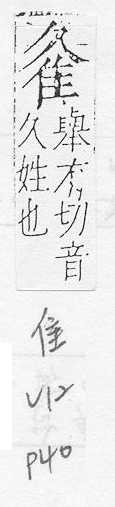 舉有切音
久姓也
隹
V12
P40